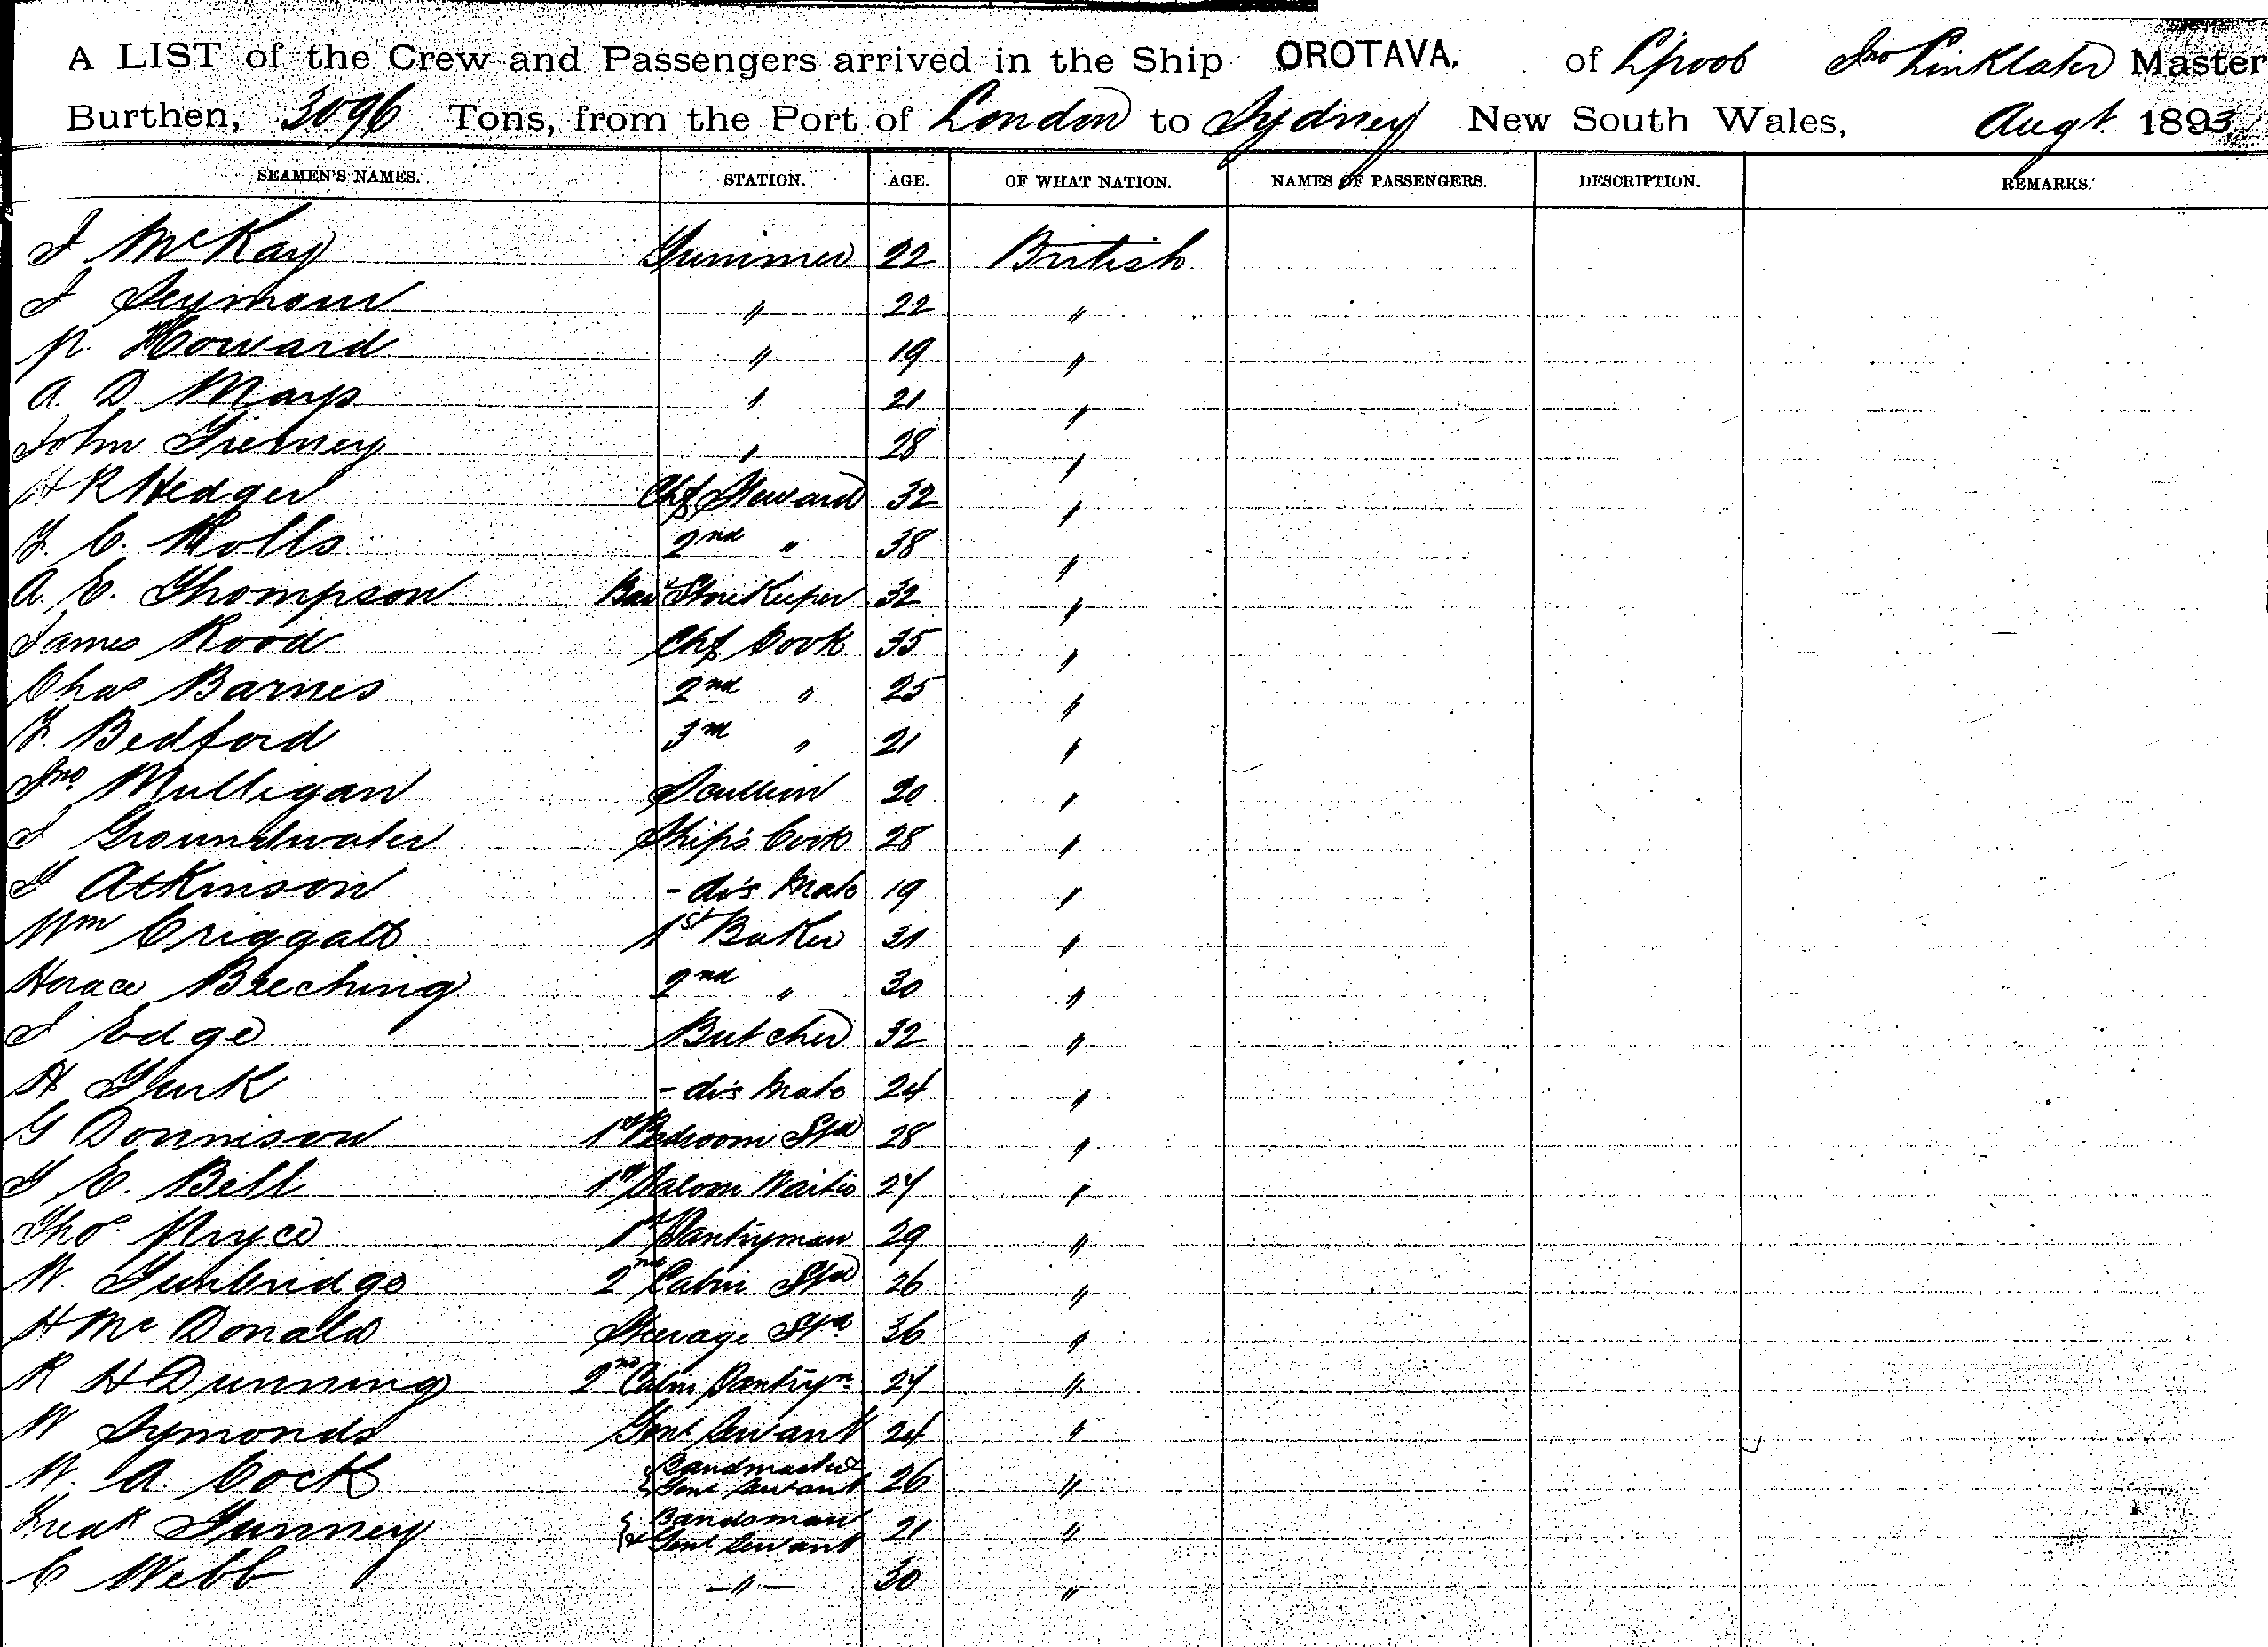 A LIST of the Crew and Passengers arrived in the Ship OROTAVA. of L'pool Jno Linklater Master
Burthen, 3096 Tons, from the Port of London to Sydney New South Wales, Augt. 1893
SEAMEN'S NAMES. STATION. AGE. OF WHAT NATION. NAMES OF PASSENGERS. DESCRIPTION. REMARKS.
J McKay Trimmer 22 British
J Seymour " 22 "
P. Howard " 19 "
A. D. Mays " 21 "
John Tierney " 28 "
H R Hedger Chf Steward 32 "
F. C. Rolls 2nd " 38 "
A. E. Thompson Bar Storekeeper 32 "
James Rood Chf Cook 35 "
Chas Barnes 2nd " 25 "
F. Bedford 3rd " 21 "
Jno. Mulligan Scullion 20 "
J Groundwater Ship's Cook 28 "
T Atkinson - do's Mate 19 "
Wm Criggall 1st Baker 31 "
Horace Beeching 2nd " 30 "
J Edge Butcher 32 "
H Turk - do's Mate 24 "
G Donnison 1st Bedroom Std 28 "
T E. Bell 1st Saloon Waiter 24 "
Thos. Pryce 1st Pantryman 29 "
W. Tunbridge 2nd Cabin Std 26 "
H Mc Donald Steerage Std 36 "
R H Dunning 2nd Cabin Pantryn. 24 "
W Symonds Genl Servant 24 "
W. A. Cock { Bandmaster & Genl Servant 26 "
Fredk Tunney { Bandsman & Genl Servant 21 "
C Webb -"- 30 "